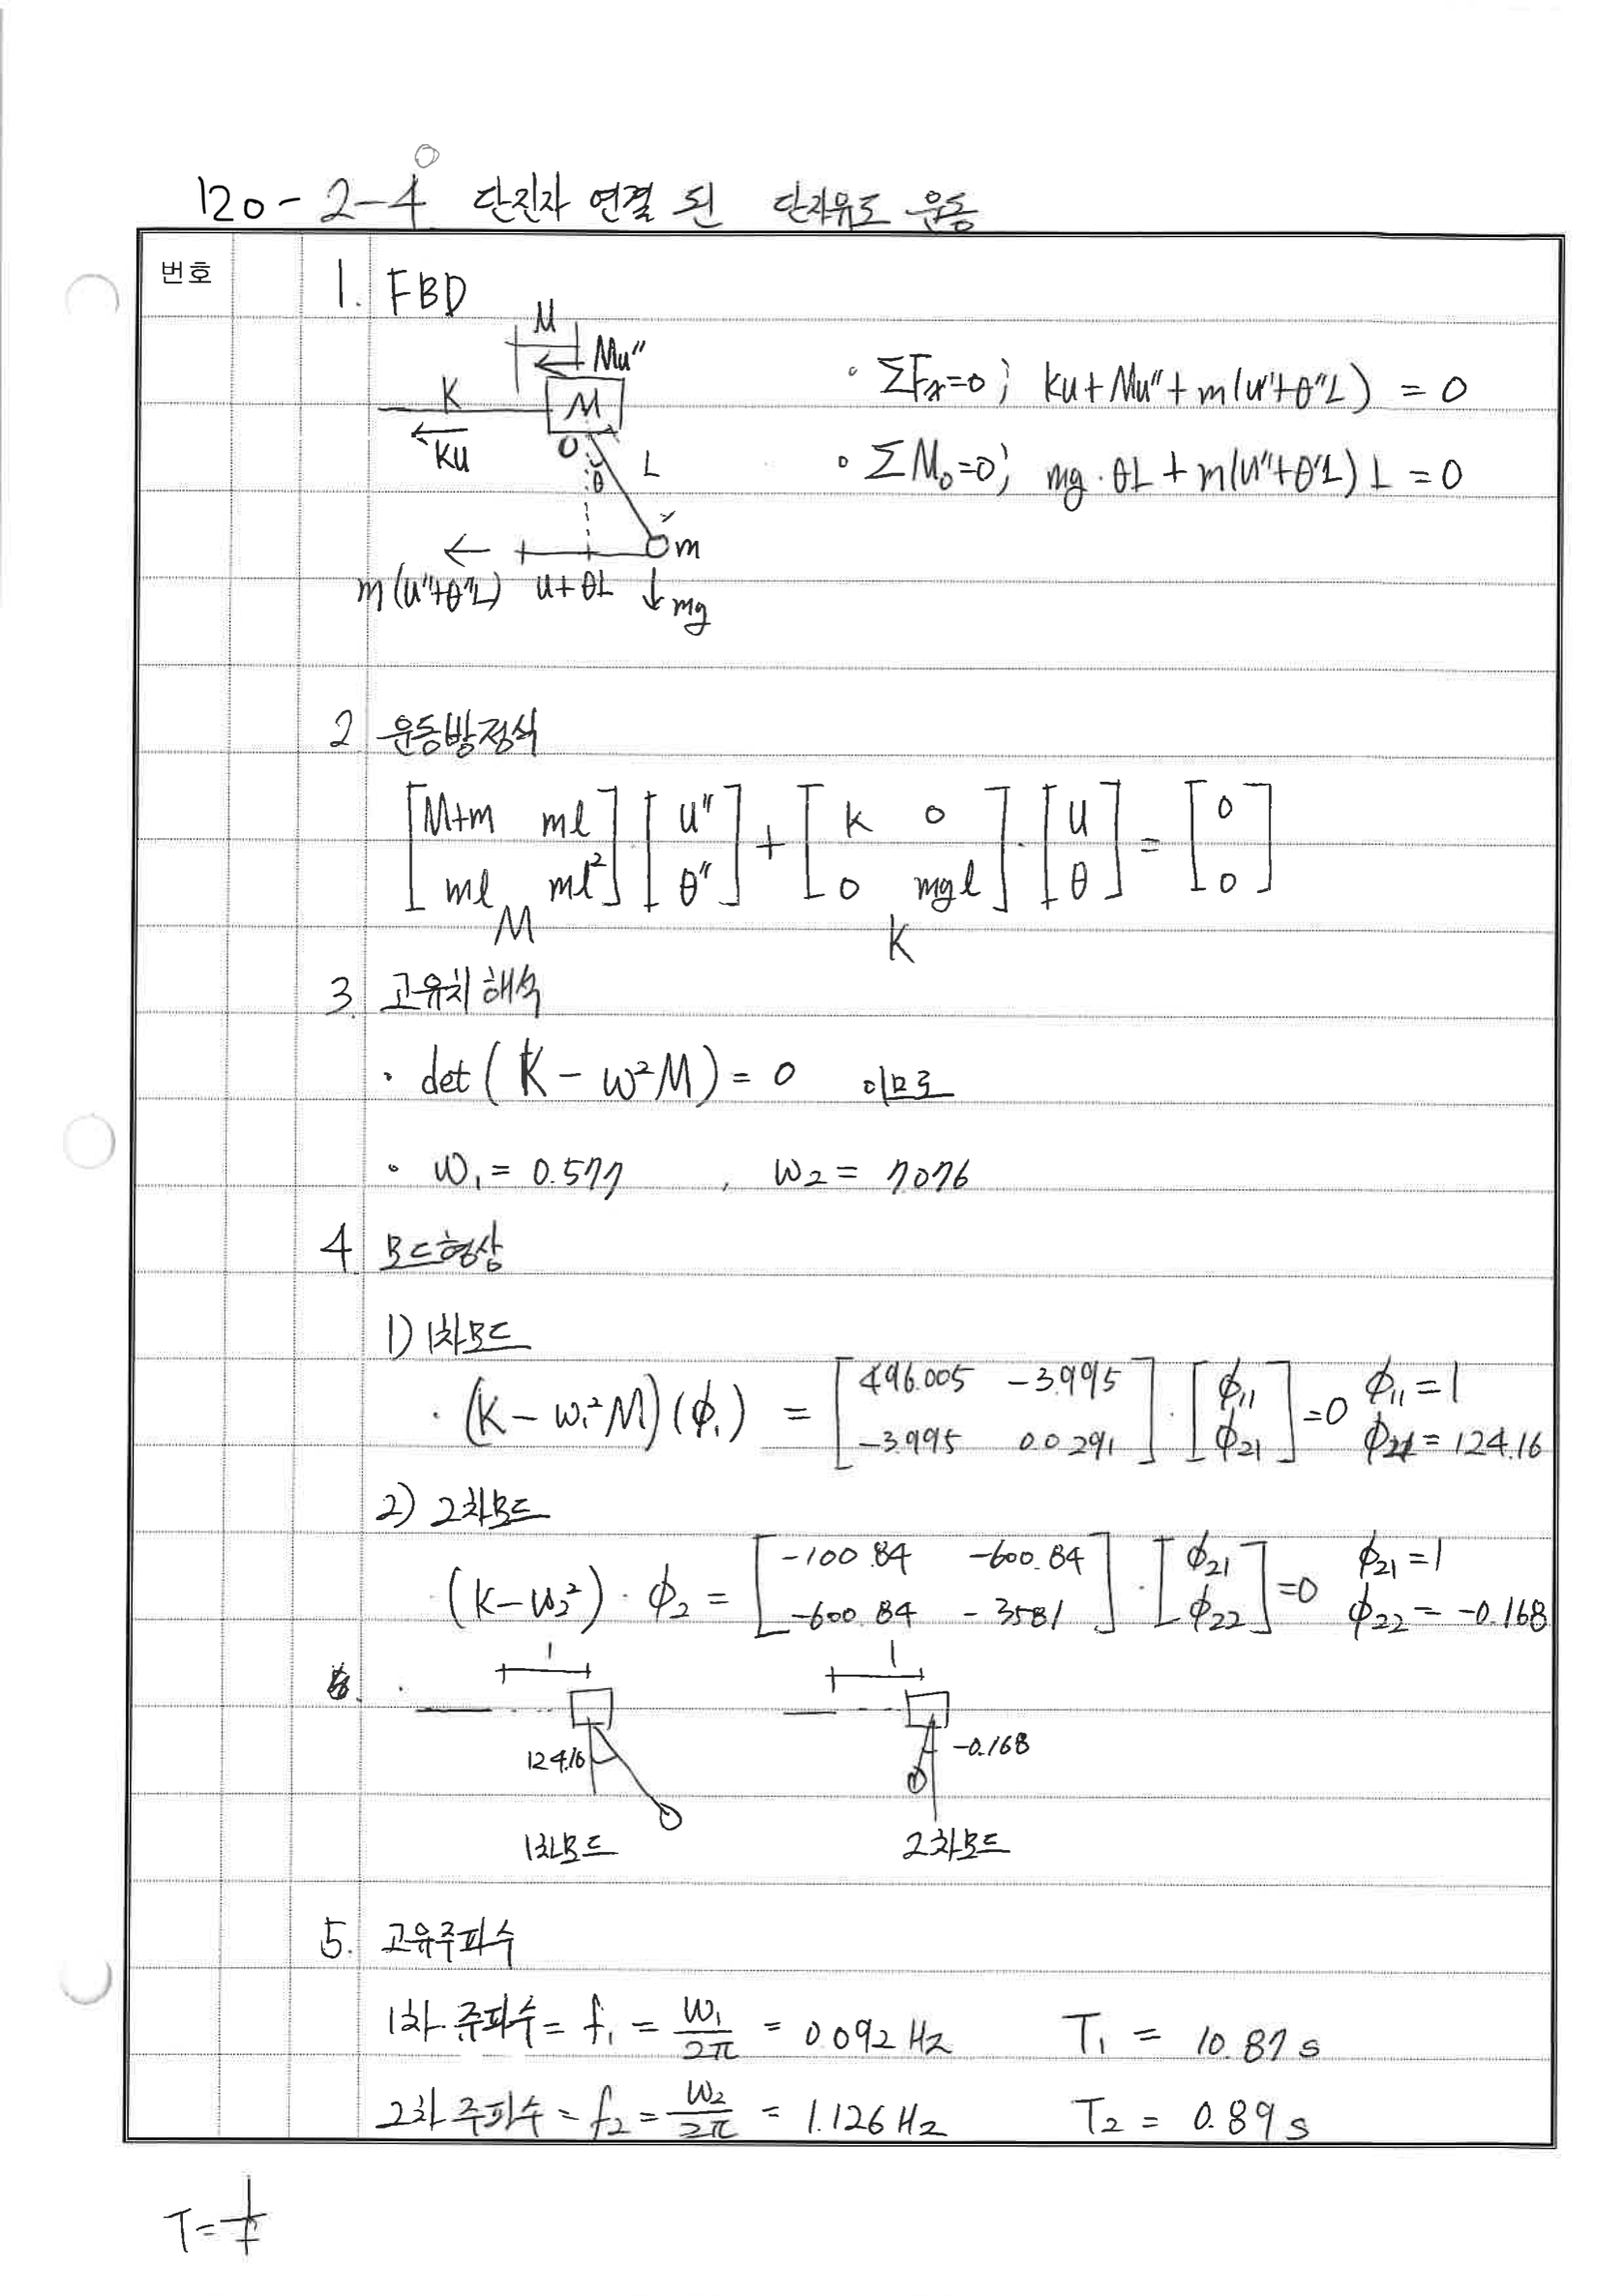 120-2-4 단진자 연결 된 단자유도 운동
번호
1. FBD
M
Mu"
K
M
Ku
O
θ
L
m
m(u"+θ"L) u+θL
mg
∘ ΣFx=0; Ku+Mu"+m(u"+θ"L) = 0
∘ ΣMo=0; mg·θL+m(u"+θ"L)L=0
2 운동방정식
[M+m ml] [u"] + [k 0] · [u] = [0]
[ml ml²] [θ"] [0 mgl] [θ] [0]
M K
3. 고유치 해석
· det(K-w²M)=0 이므로
∘ w₁=0.577 , w₂=7.076
4. 모드형상
1) 1차모드
· (K-w₁²M)(ϕ₁) = [496.005 -3.995] · [ϕ₁₁] =0 ϕ₁₁=1
[-3.995 0.0291] [ϕ₂₁] ϕ₂₁=124.16
2) 2차모드
· (K-w₂²)·ϕ₂ = [-100.84 -600.84] · [ϕ₂₁] =0 ϕ₂₁=1
[-600.84 -3581] [ϕ₂₂] ϕ₂₂=-0.168
1 1
124.16 -0.168
1차모드 2차모드
5. 고유주파수
1차 주파수 = f₁ = w₁/2π = 0.092 Hz T₁ = 10.87 s
2차 주파수 = f₂ = w₂/2π = 1.126 Hz T₂ = 0.89 s
T=1/f